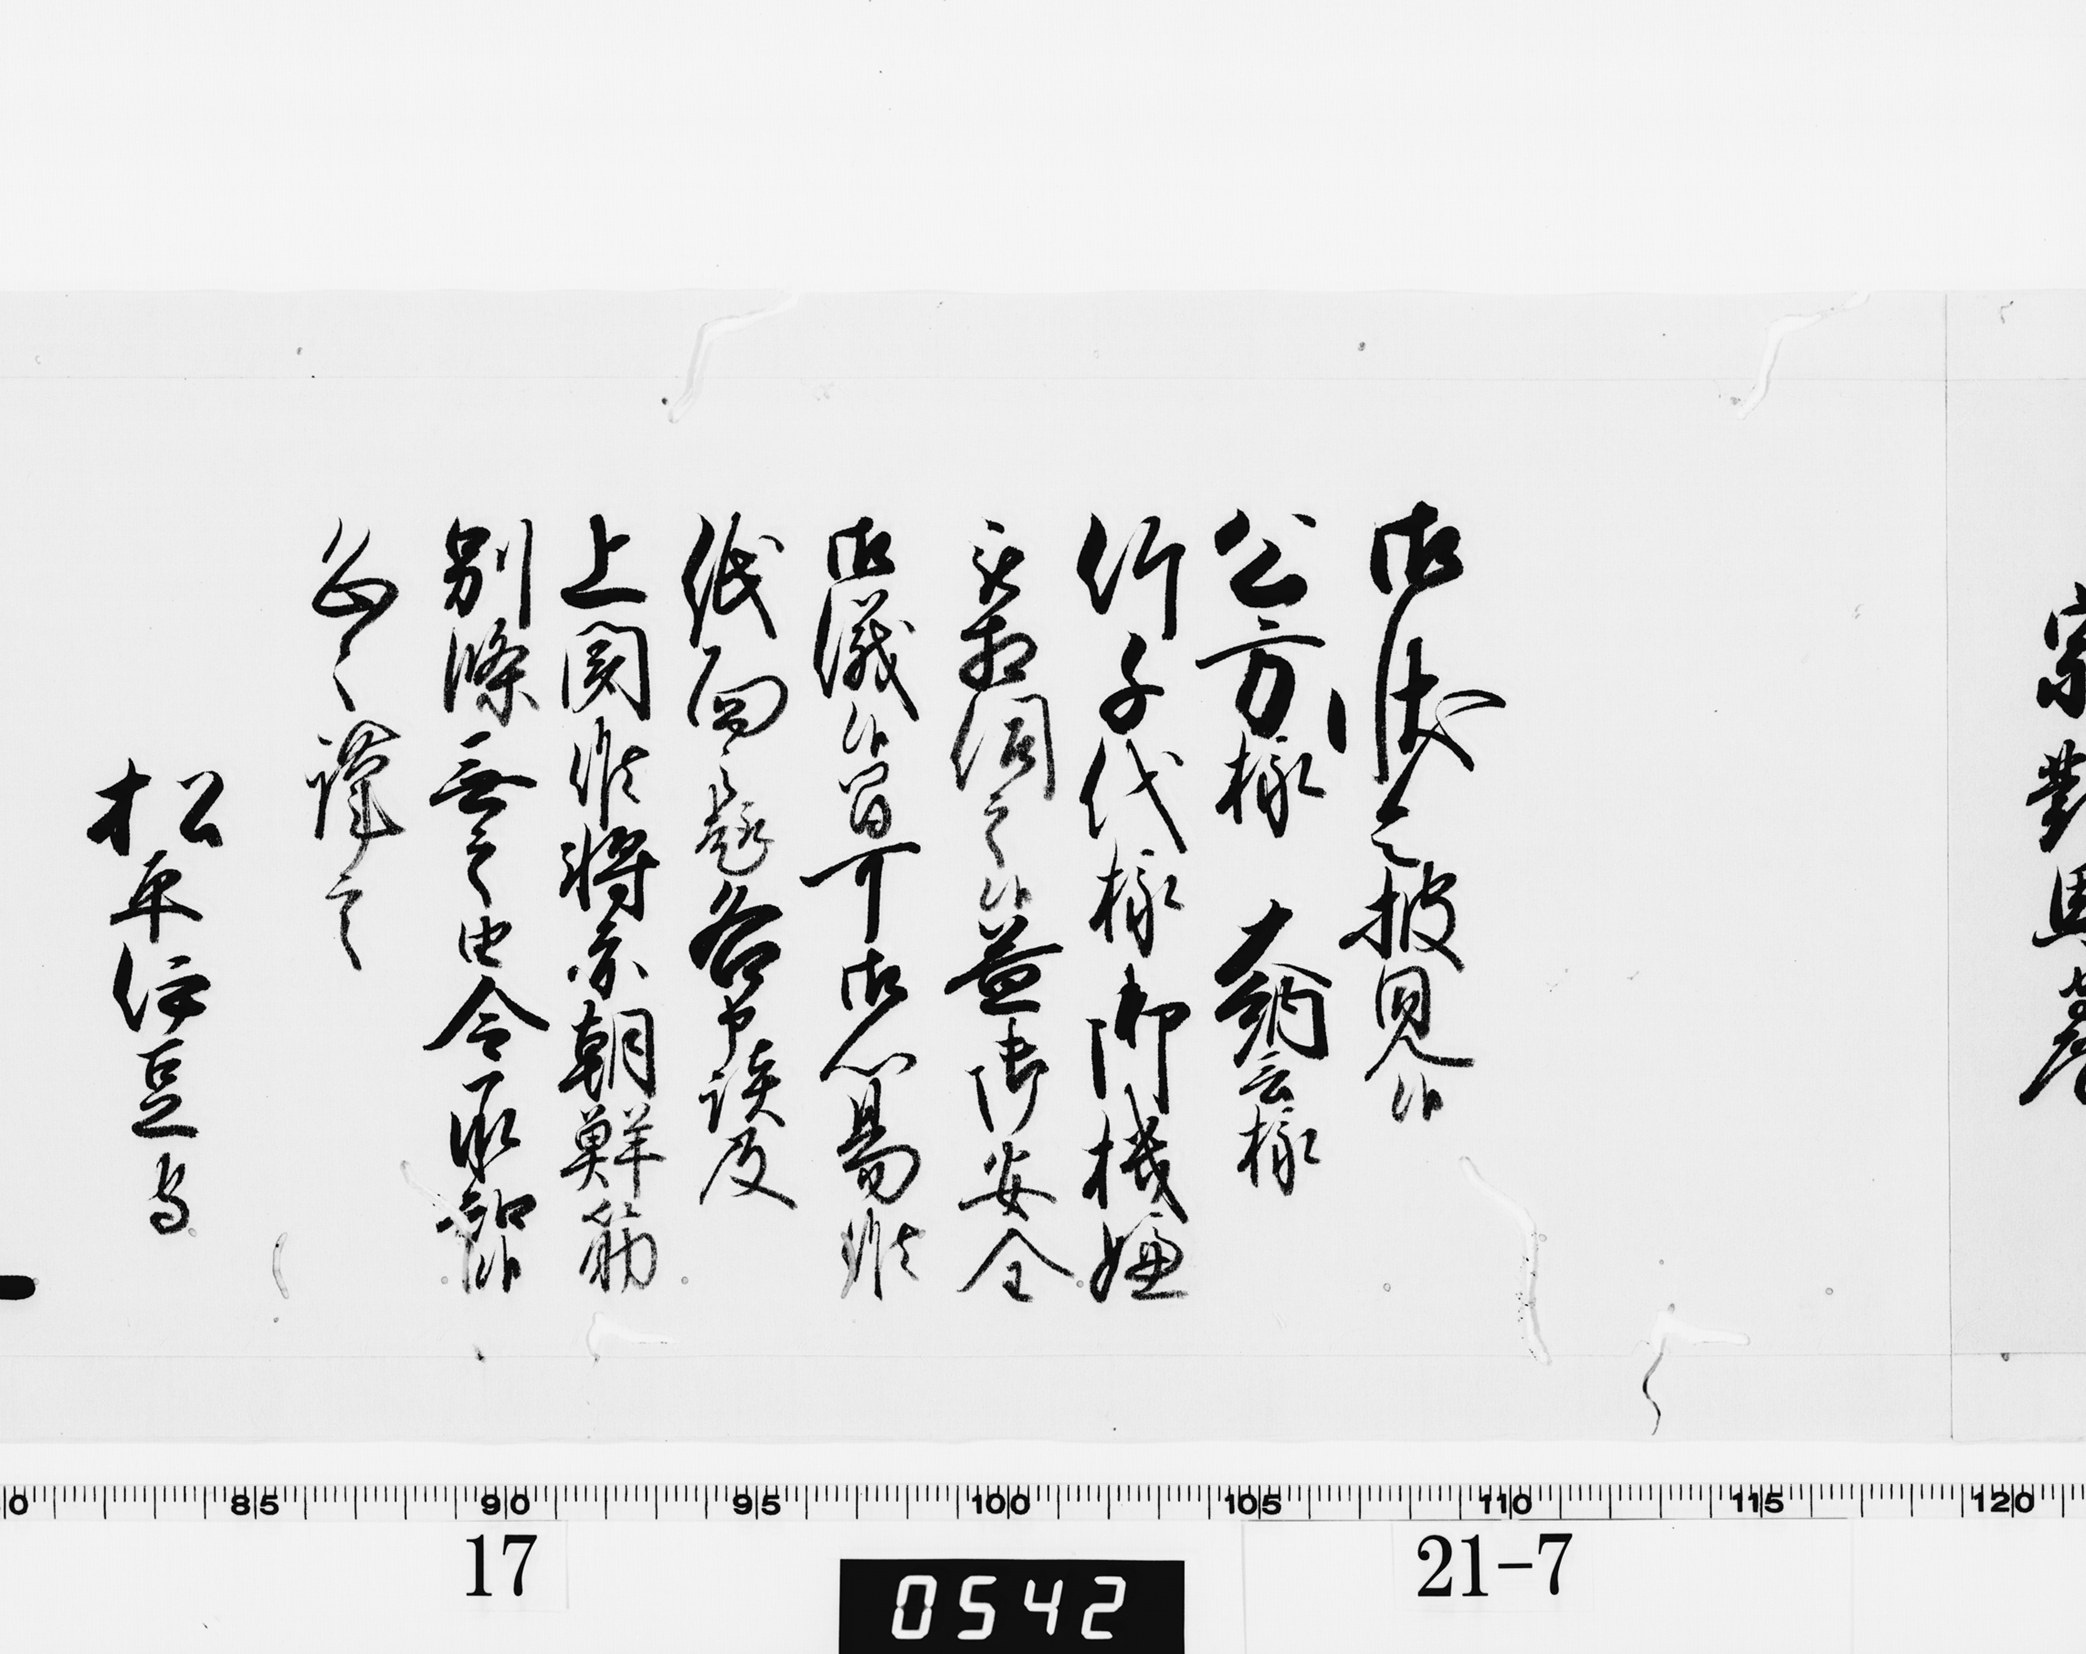 宗對馬
御状令披見候
公方様 大納言様
竹千代様御機嫌
被相伺之候益御安全
御儀候間可御心易候
紙面之趣各申談及
上聞候将亦朝鮮筋
別條無之由令承知候
恐々謹言
松平伊豆守
0 85 90 95 100 105 110 115 120
17
21-7
0542